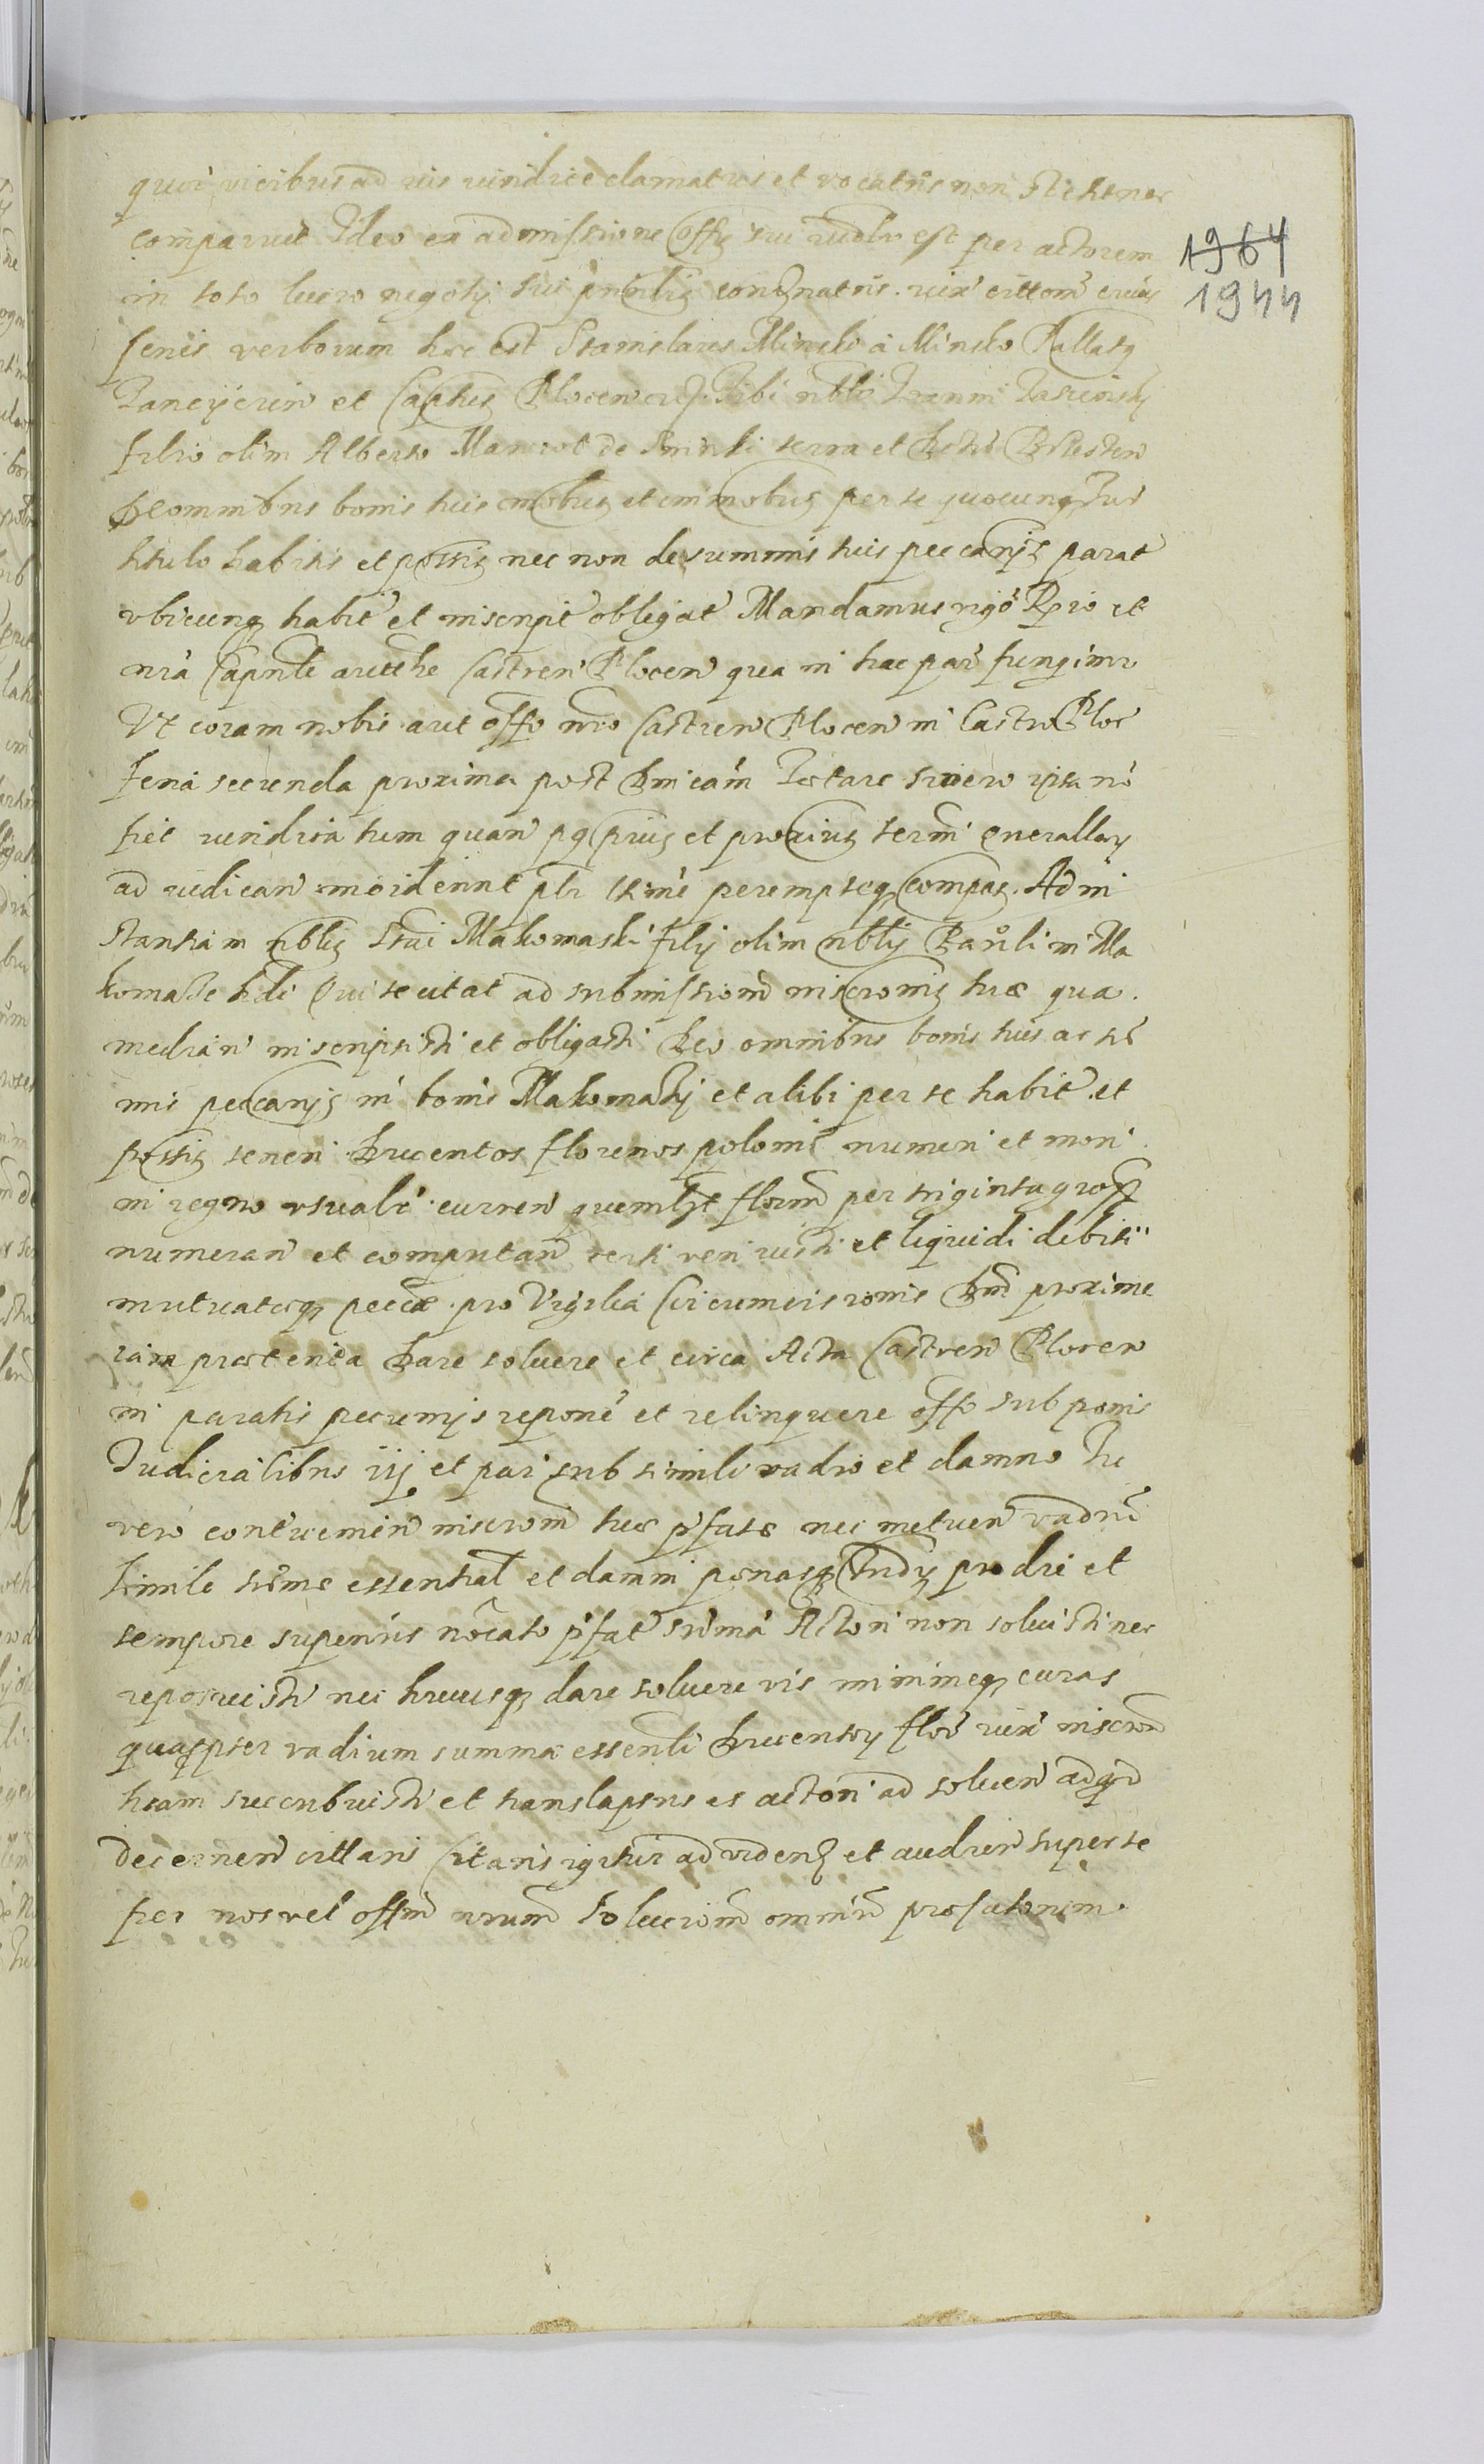 quar vicibus ad ius iuridice clamatus et vocatus non stetit nec
comparuit Ideo ex admissione offy sui iudlr est per actorem
in toto lucro negotij sui pntlis condnatus. iux cittom cuius
senis verborum hoc est Stanislaus Minski a Minsko Pallats
Lancijcien et Capthus Plocen etz. Tibi nbli Joanni Jasienski
filio olim Alberto Manirot de Sminki terra et Bstri Brlesten
De omnibus bonis tuis mobus et immobus per te quocunq Jur
titulo habitis et possis nec non de summis tuis peccarijs parat
vbicunq habit et inscript obligat Mandamus rigo Rgio et
nra Capnli aucthe Castren Plocen qua in hac par fungimr
Vt coram nobis aut offo nro Castren Plocen in Castro Ploc
feria secunda proxima post Dnicam Laetare si vero ipsa no
fiet iuridica tum quan pq prius et proxius termi qnerallar
ad iudican inciderint plr ttime peremptieq compas. Ad in
stantiam nblis Stai Makomaski filij olim nblis Pauli in Ma
komasse hdi Qui te citat ad submissionem inscronis tuae qua
median inscripsisti et obligasti De omnibus bonis tuis ac su
mis peccarijs in bonis Makomasij et alibi per te habit et
possis teneri Ducentos florenos polonis numeri et moni
in regno vsualr curren quemlzt florm per triginta gross
numeran et computan certi veri iusti et liquidi debiti
mutuateq peccae pro Vigilia Circumcisionis Dni proxime
iam praeterita Dare soluere et circa Acta Castren Plocen
in paratis pecunijs repone et relinquere offo sub ponis
Judicialibus iij et pari sub simili vadio et damno Tu
vero contrauenien inscrom tuae pfatae nec metuen vadiu
simile sume essential et damni poenasq Judy pro die et
tempore superius nocato pfat suma Actori non soluisti nec
reposuisti nec hucusq dare soluere vis minimeq curas
quaqpter vadium summae essenli Ducentor flor iux inscron
tuam succubuisti et translapsus es actori ad soluen adqd
decernen cittaris Citaris igitur ad viden et audien super te
per nos vel offm nrum Solucrom omniu profatorum.
1964
1944